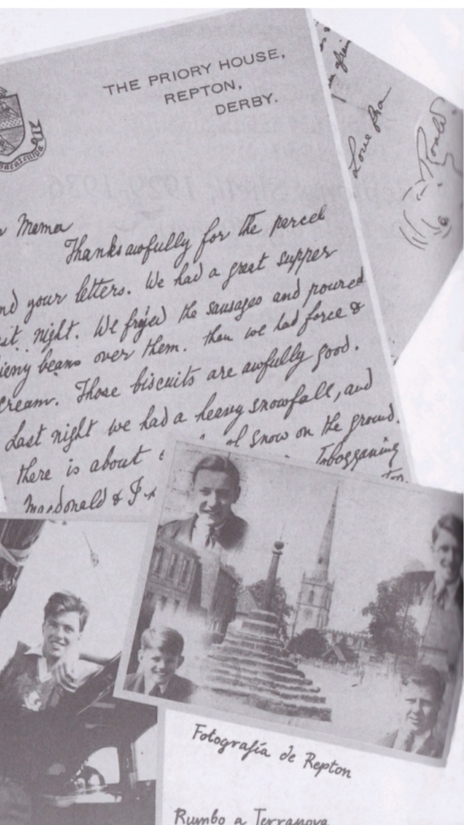 THE PRIORY HOUSE,
REPTON,
DERBY.
Mama
Thanks awfully for the parcel
nd your letters. We had a great supper
night. We fryed the sausages and poured
beans over them. then we had force &
cream. Those biscuits are awfully good.
Last night we had a heavy snowfall, and
there is about of snow on the ground.
Tobogganing
Macdonald &
Love from
Roald
Fotografía de Repton
Rumbo a Terranova